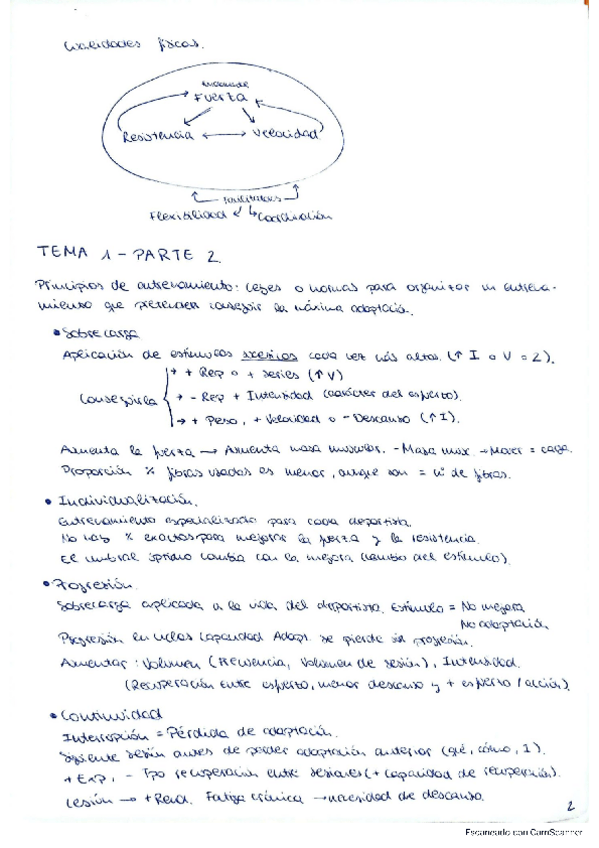 Cualidades físicas.
Fuerza
Resistencia ⟷ Velocidad
facilitadores
Flexibilidad Coordinación
TEMA 1 - PARTE 2
Principios de entrenamiento: Leyes o normas para organizar un entrena-
miento que pretenden conseguir la máxima adaptación.
• Sobrecarga
Aplicación de estímulos cada vez más altos. (↑ I o V o 2).
→ + Rep o + series (↑V)
Conseguirla → - Rep + Intensidad (carácter del esfuerzo).
→ + Peso, + Velocidad o - Descanso (↑I).
Aumenta la fuerza → Aumenta masa muscular. - Masa musc → Mover = carga.
Proporción % fibras usadas es menor, aunque son = nº de fibras.
• Individualización.
Entrenamiento especializado para cada deportista.
No hay % exactos para mejorar la fuerza y la resistencia.
El umbral óptimo cambia con la mejora (cambio del estímulo).
• Progresión.
Sobrecarga aplicada a la vida del deportista. Estímulo = No mejora
No adaptación
Progresión en Capacidad Adapt. se pierde sin progresión.
Aumentar: Volumen (Frecuencia, Volumen de sesión), Intensidad.
(Recuperación entre esfuerzo, menor descanso y + esfuerzo / acción).
• Continuidad
Interrupción = Pérdida de adaptación.
Siguiente sesión antes de perder adaptación anterior (qué, cómo, I).
+ Exp, - Tpo recuperación entre sesiones (+ Capacidad de recuperación).
Lesión → + Rend. Fatiga crónica → necesidad de descanso.
2
Escaneado con CamScanner